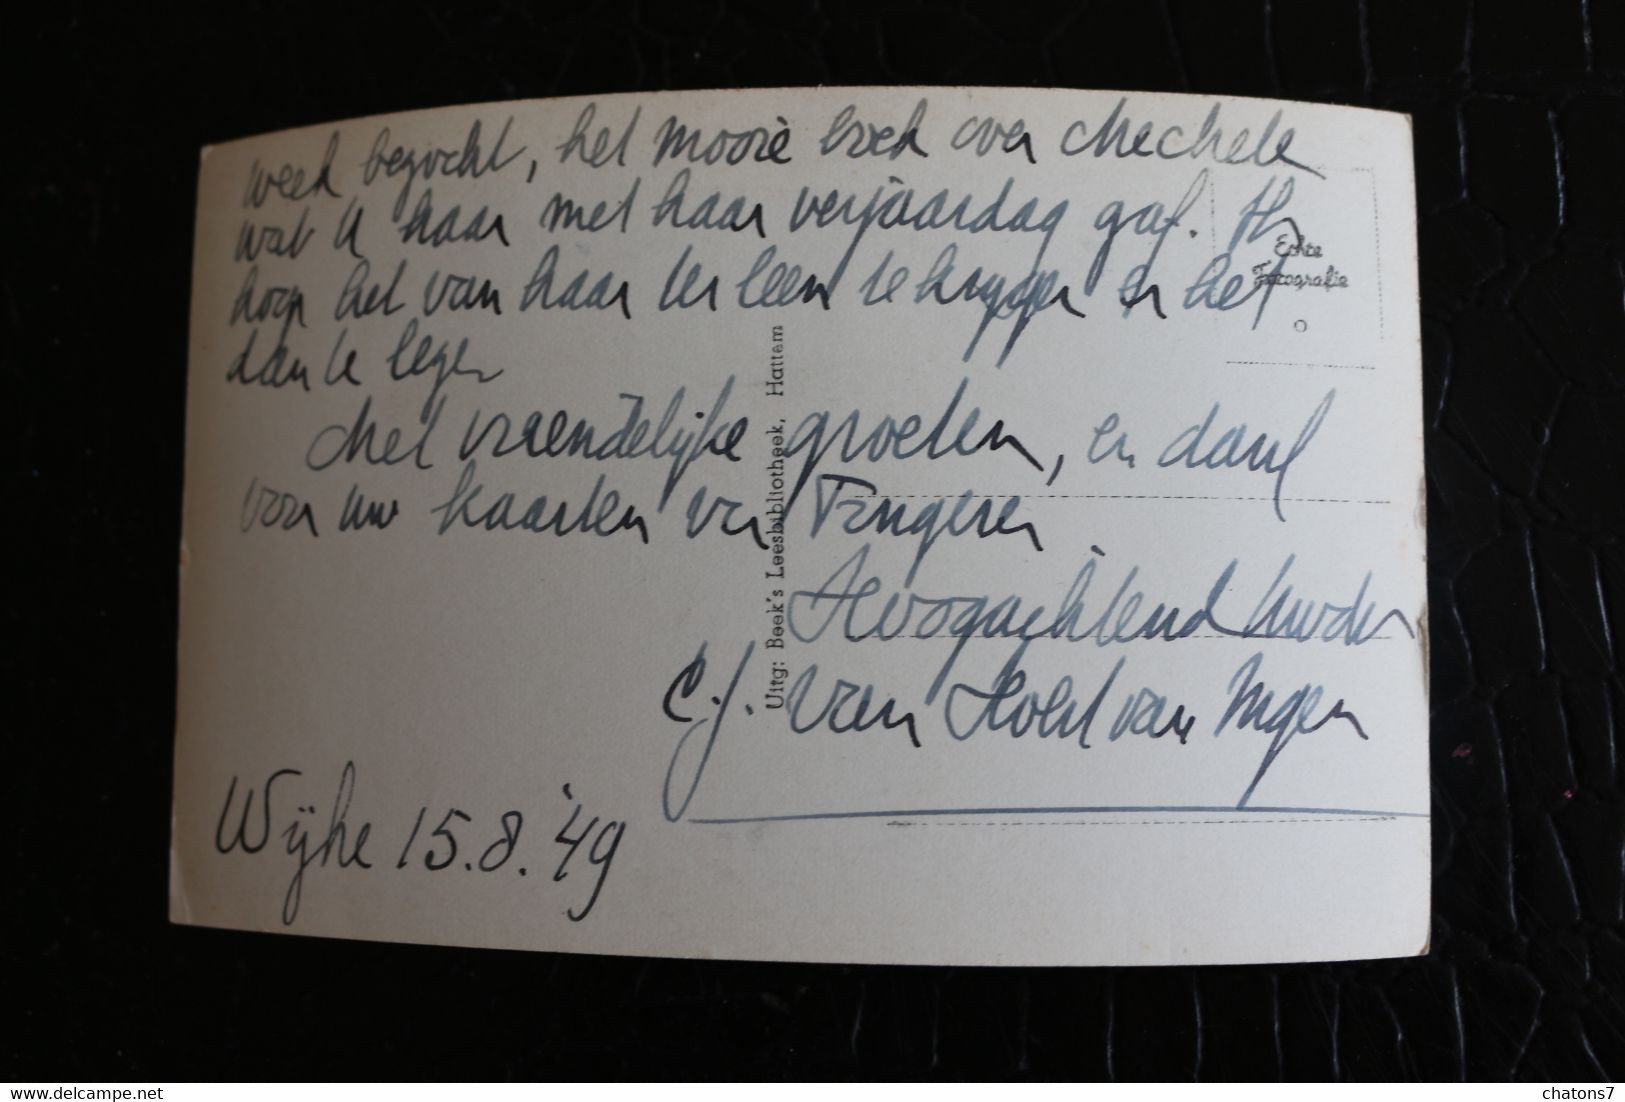 week bezocht, het mooie boek over Mechele
wat U haar met haar verjaardag gaf. Ik
hoop het van haar ter leen te krijgen en het
dan te lezen
Met vriendelijke groeten, en dank
voor uw kaarten van Tongeren
Hoogachtend
C.J. van Holst van Ingen
Wijhe 15.8.'49
Echte
Fotografie
Uitg: Beek's Leesbibliotheek, Hattem
delcampe.net
chatons7